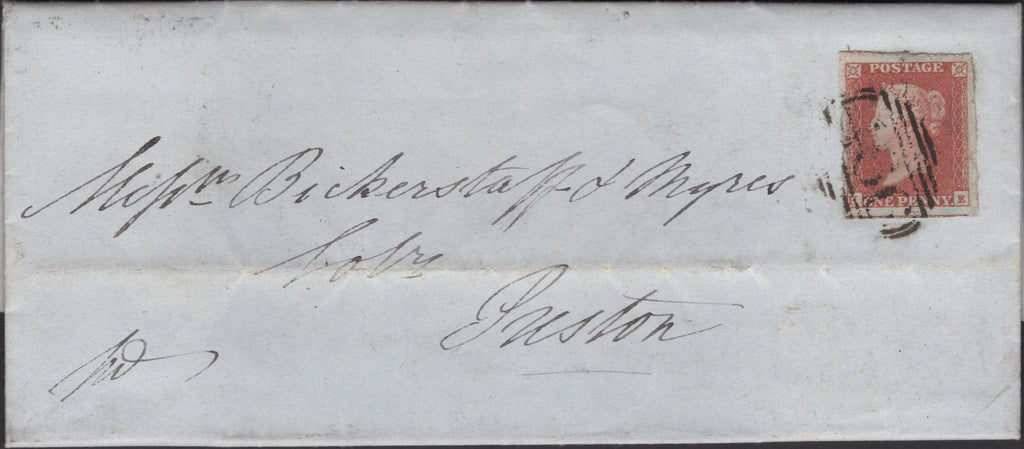 POSTAGE
ONE PENNY
E
Messrs Bickerstaff & Myres
Solrs
Preston
pd